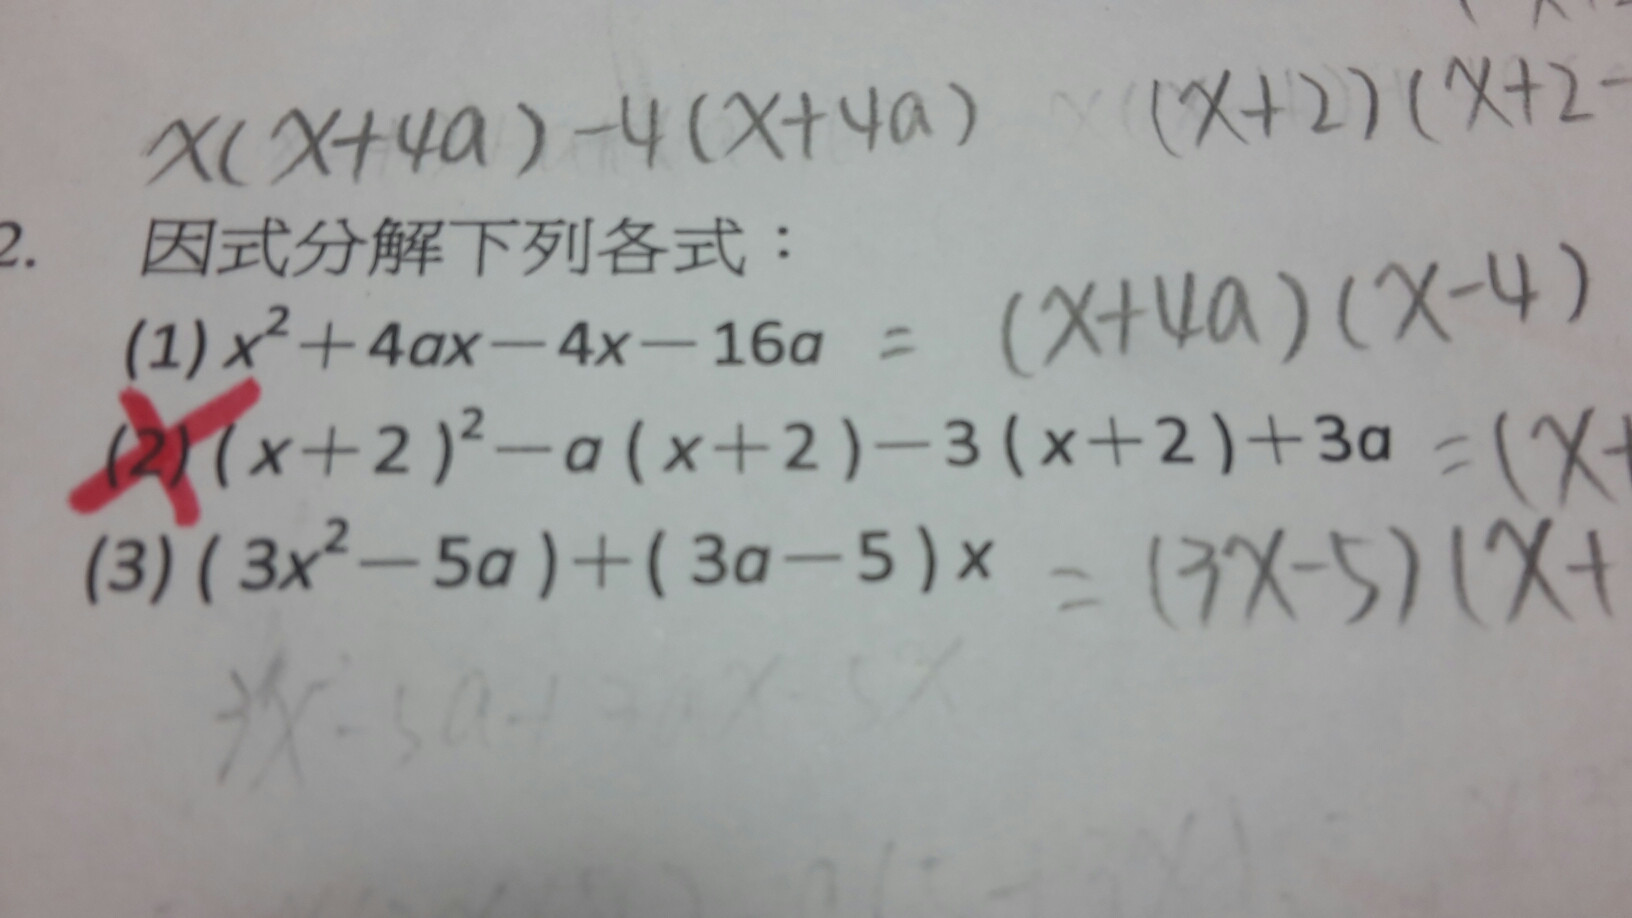 x(x+4a)-4(x+4a) (x+2)(x+2-
2. 因式分解下列各式：
(1) x²+4ax-4x-16a = (x+4a)(x-4)
(2) (x+2)²-a(x+2)-3(x+2)+3a =(x+
(3) (3x²-5a)+(3a-5)x = (3x-5)(x+
3x²-5a+3ax-5x